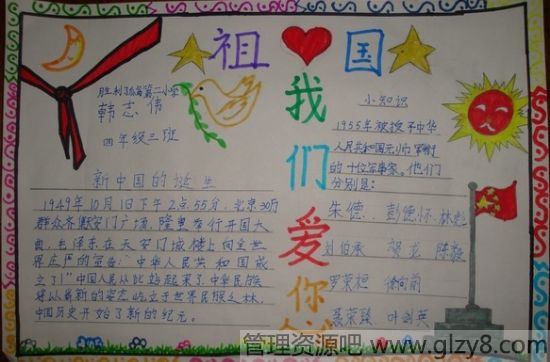 祖❤国
胜利孤岛第二小学
韩志伟
四年级三班
新中国的诞生
1949年10月1日下午2点55分,北京30万
群众齐聚天安门广场,隆重举行开国大
典,毛泽东在天安门城楼上向全世
界庄严的宣告:"中华人民共和国成
立了!"中国人民从此站起来了,中华民族
将以崭新的姿态屹立于世界民族之林,
中国历史开始了新的纪元。
我们爱你
小知识
1955年被授予中华
人民共和国元帅军衔
的十位军事家。他们
分别是:
朱德、彭德怀、林彪
刘伯承 贺龙 陈毅
罗荣桓 徐向前
聂荣臻 叶剑英
管理资源吧 www.glzy8.com